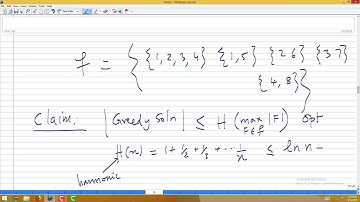 f = { {1,2,3,4} {1,5} {2 6} {3 7}
{4,8} }
Claim: |Greedy Soln| ≤ H ( max |F| ) opt
F∈f
H(n) = 1 + 1/2 + 1/3 + ... 1/n ≤ ln n -
harmonic